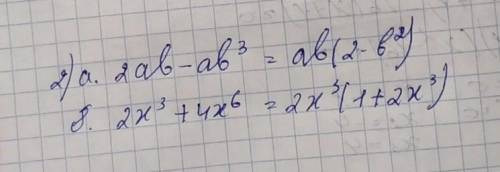 2) а. 2ab - ab³ = ab(2 - b²)
б. 2x³ + 4x⁶ = 2x³(1 + 2x³)